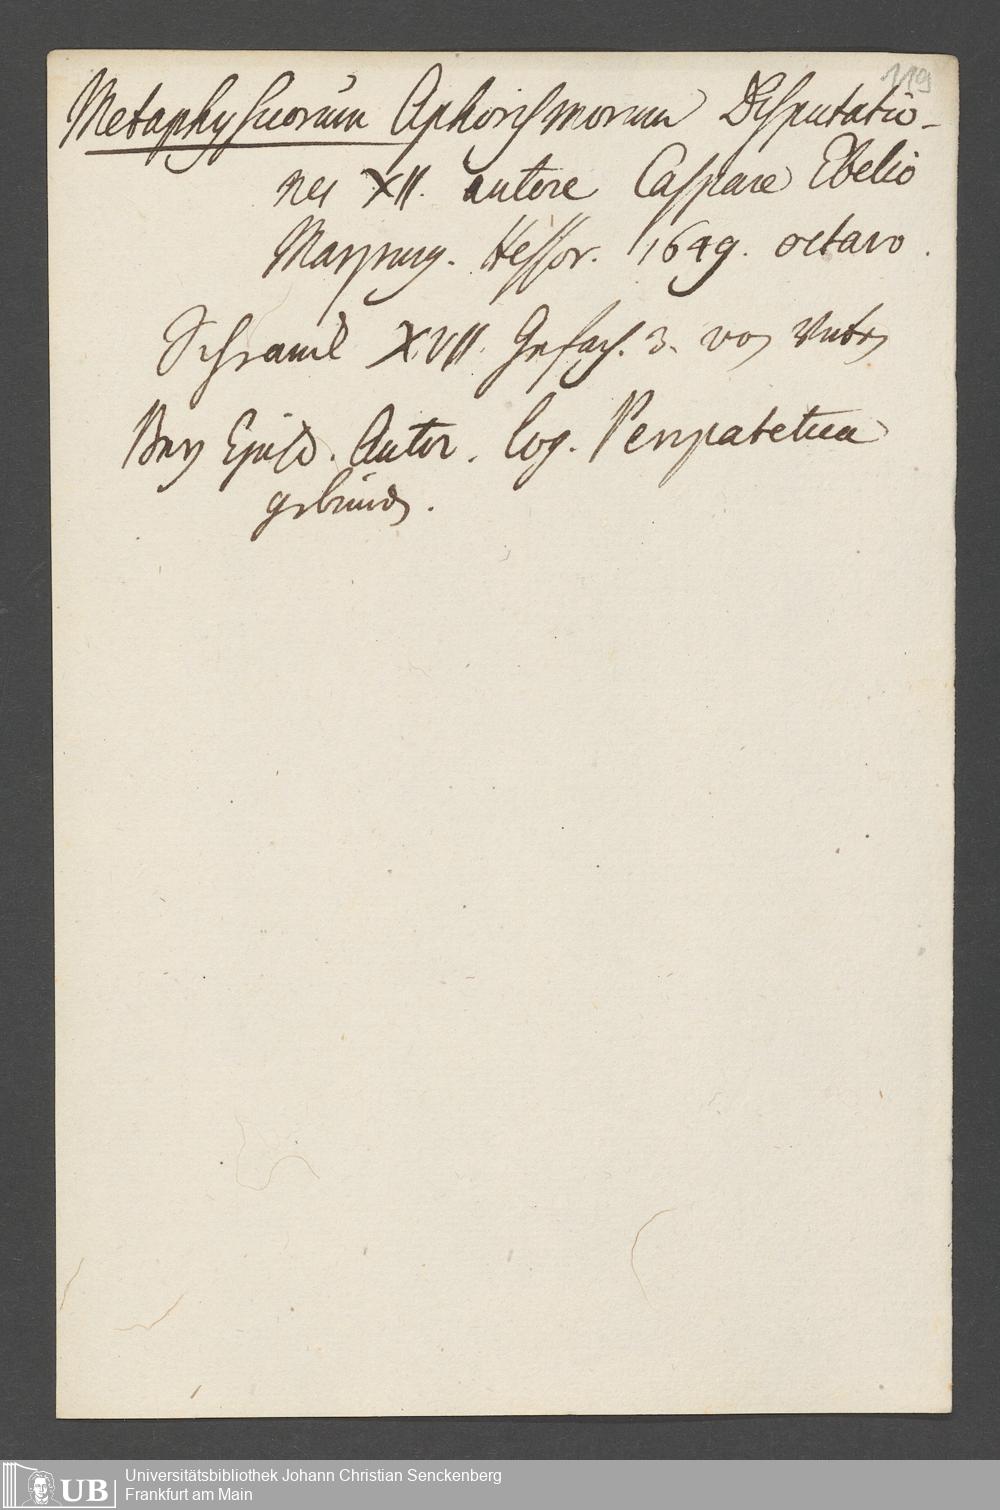 119
Metaphysicorum Aphorismorum Disputatio-
nes XII. autore Caspare Ebelio
Marpurg. Hessor. 1649. octavo.
Schranck XVII. Gefach. 3. von Unten
Bey Autor. Log. Peripatetica
gebunden.
Universitätsbibliothek Johann Christian Senckenberg
Frankfurt am Main
UB